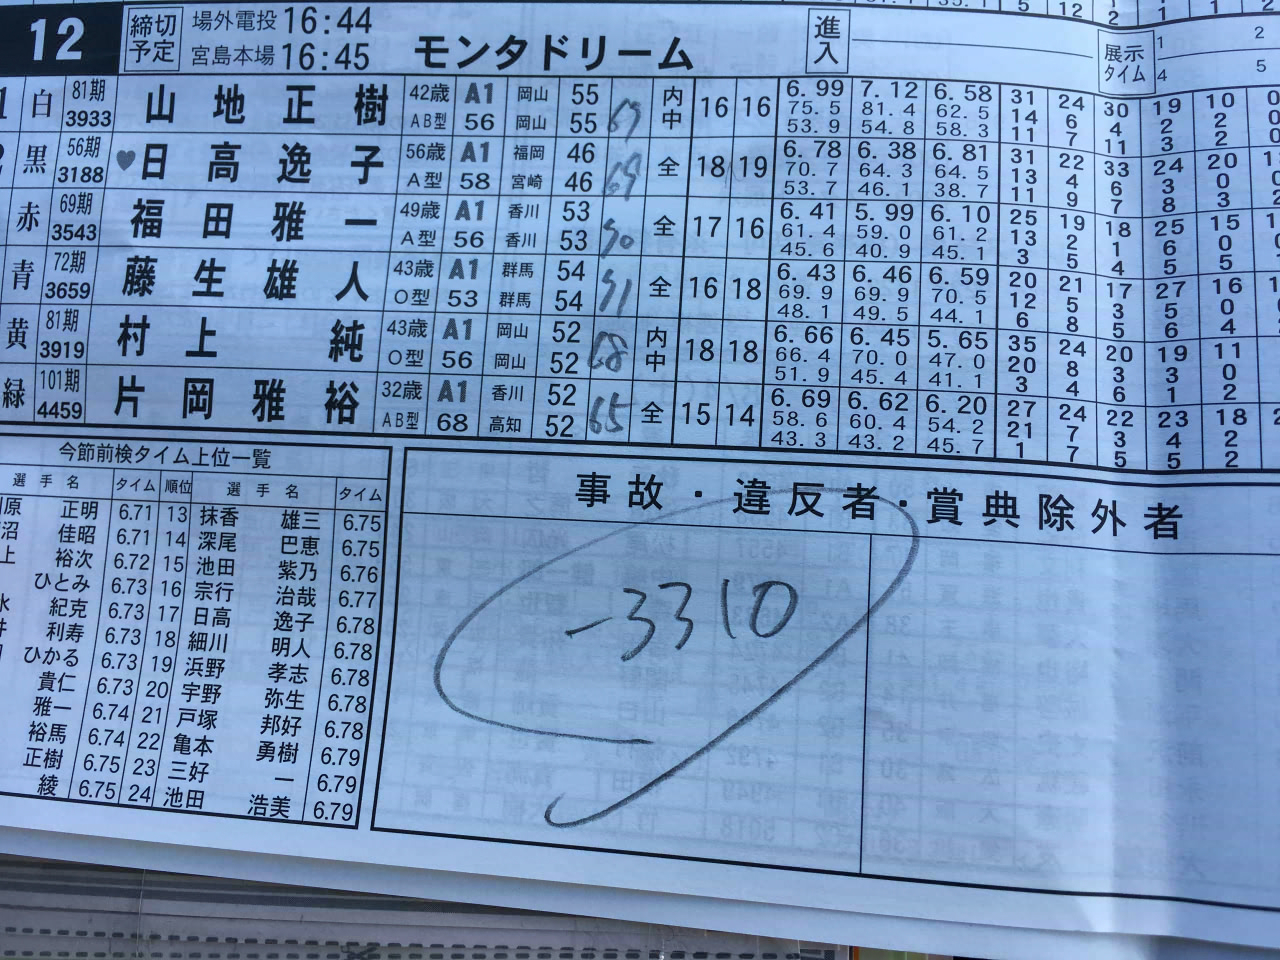 12 締切予定 場外電投 16:44 モンタドリーム 進入 展示タイム 1 2
宮島本場 16:45 4 5
1 白 81期 山地正樹 42歳 A1 岡山 55 内中 16 16 6.99 7.12 6.58 31 24 30 19 10
3933 AB型 56 岡山 55 67 75.5 81.4 62.5 14 6 4 2 2
53.9 54.8 58.3 11 7 11 3 2
黒 56期 ♥日高逸子 56歳 A1 福岡 46 全 18 19 6.78 6.38 6.81 31 22 33 24 20
3188 A型 58 宮崎 46 69 70.7 64.3 64.5 13 4 6 3 0
53.7 46.1 38.7 11 9 7 8 3
赤 69期 福田雅一 49歳 A1 香川 53 全 17 16 6.41 5.99 6.10 25 19 18 25 15
3543 A型 56 香川 53 70 61.4 59.0 61.2 13 2 1 6 0
45.6 40.9 45.1 3 5 4 5 5
青 72期 藤生雄人 43歳 A1 群馬 54 全 16 18 6.43 6.46 6.59 20 21 17 27 16
3659 O型 53 群馬 54 71 69.9 69.9 70.5 12 5 3 5 0
48.1 49.5 44.1 6 8 5 6 4
黄 81期 村上純 43歳 A1 岡山 52 内中 18 18 6.66 6.45 5.65 35 24 20 19 11
3919 O型 56 岡山 52 68 66.4 70.0 47.0 20 8 3 3 0
51.9 45.4 41.1 3 4 6 1 2
緑 101期 片岡雅裕 32歳 A1 香川 52 全 15 14 6.69 6.62 6.20 27 24 22 23 18
4459 AB型 68 高知 52 65 58.6 60.4 54.2 21 7 3 4 2
43.3 43.2 45.7 1 7 5 5 2
今節前検タイム上位一覧
選手名 タイム 順位 選手名 タイム
原 正明 6.71 13 抹香 雄三 6.75
沼 佳昭 6.71 14 深尾 巴恵 6.75
上 裕次 6.72 15 池田 紫乃 6.76
ひとみ 6.73 16 宗行 治哉 6.77
紀克 6.73 17 日高 逸子 6.78
井 利寿 6.73 18 細川 明人 6.78
ひかる 6.73 19 浜野 孝志 6.78
貴仁 6.73 20 宇野 弥生 6.78
雅一 6.74 21 戸塚 邦好 6.78
裕馬 6.74 22 亀本 勇樹 6.79
正樹 6.75 23 三好 一 6.79
綾 6.75 24 池田 浩美 6.79
事故・違反者・賞典除外者
-3310